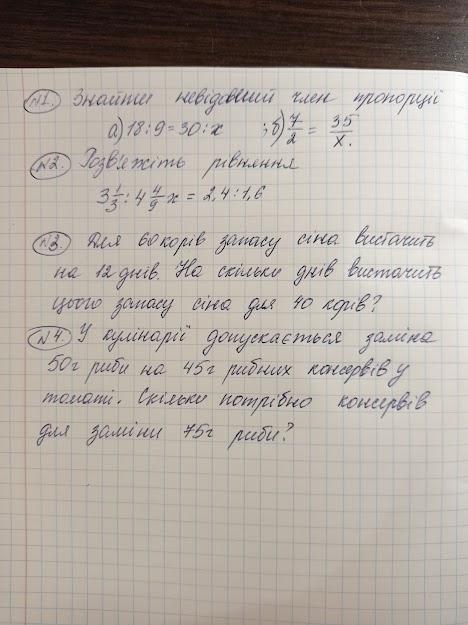 №1. Знайти невідомий член пропорції
а) 18:9=30:х ; б) 7/2 = 35/х.
№2. Розв'яжіть рівняння
3 1/3 : 4 4/9 х = 2,4 : 1,6
№3. Для 60 корів запасу сіна вистачить
на 12 днів. На скільки днів вистачить
цього запасу сіна для 40 корів?
№4. У кулінарії допускається заміна
50г риби на 45г рибних консервів у
томаті. Скільки потрібно консервів
для заміни 75г риби?